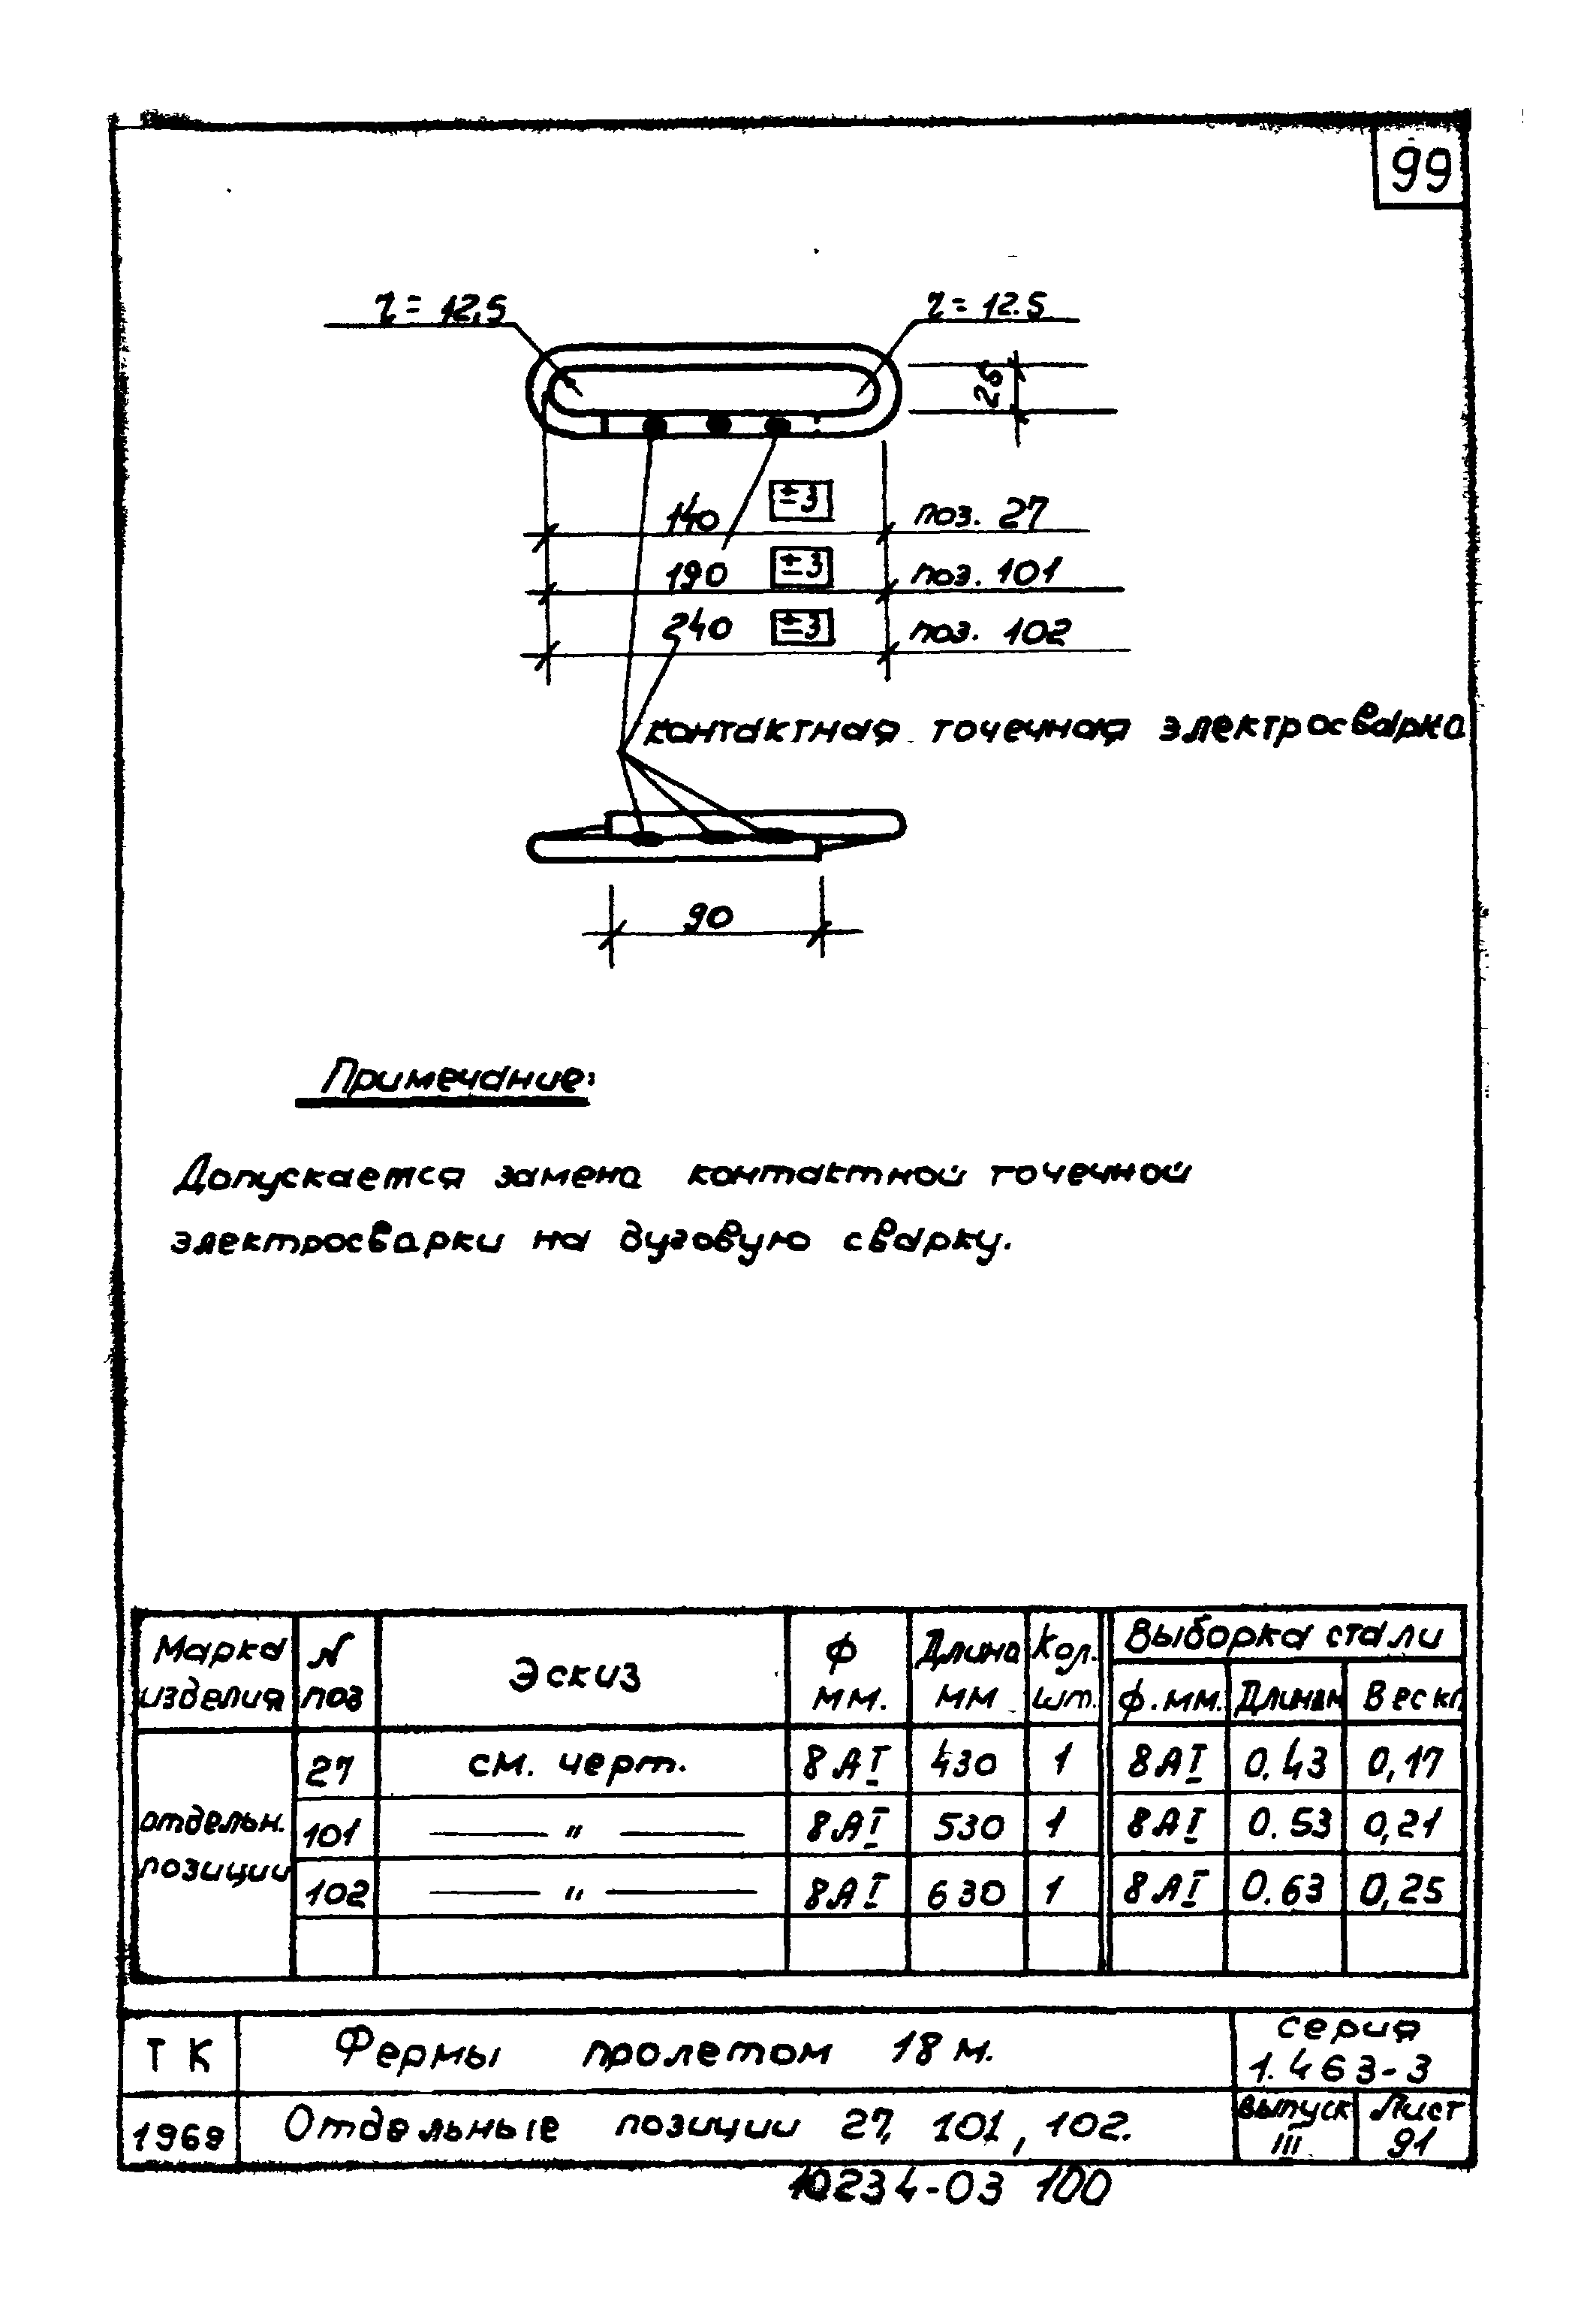 99
r = 12,5
r = 12.5
26
140 ±3 поз. 27
190 ±3 поз. 101
240 ±3 поз. 102
контактная точечная электросварка
90
Примечание:
Допускается замена контактной точечной
электросварки на дуговую сварку.
Марка изделия | N поз | Эскиз | Ф мм. | Длина мм | Кол. шт. | Выборка стали
ф. мм. | Длина м | Вес кг
отдельн. позиции
27 | см. черт. | 8 АI | 430 | 1 | 8 АI | 0,43 | 0,17
101 | — " — | 8 АI | 530 | 1 | 8 АI | 0.53 | 0,21
102 | — " — | 8 АI | 630 | 1 | 8 АI | 0.63 | 0,25
ТК | Фермы пролетом 18 м. | серия 1.463-3
1969 | Отдельные позиции 27, 101, 102. | выпуск III | Лист 91
10234-03 100